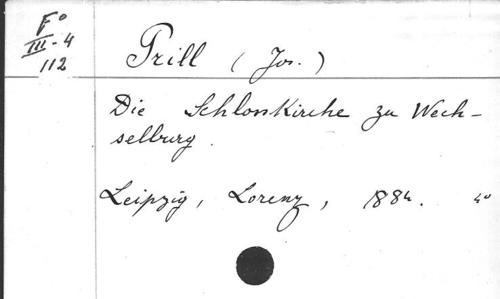 F°
III-4
112
Prill (Jos.)
Die Schlosskirche zu Wech-
selburg.
Leipzig, Lorenz, 1884. 4°